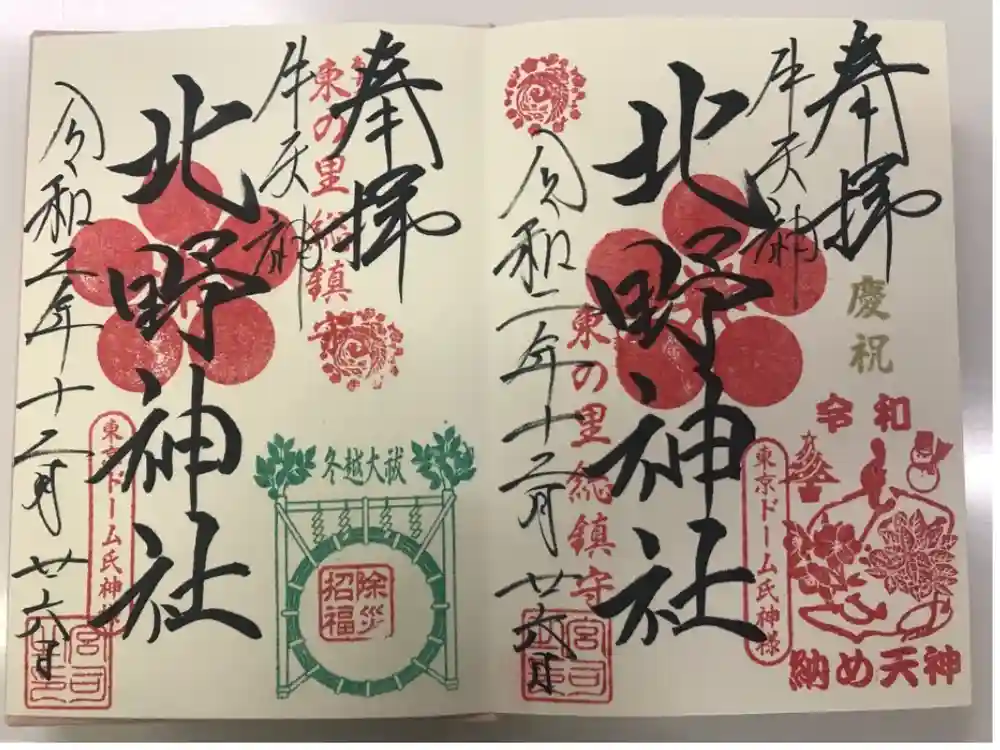 奉拝
牛天神
慶祝
令和
納め天神
北野神社
東の里総鎮守
東京ドーム氏神様
令和二年十二月廿六日
宮司
奉拝
牛天神
東の里総鎮守
冬越大祓
除災
招福
北野神社
東京ドーム氏神様
令和二年十二月廿六日
宮司